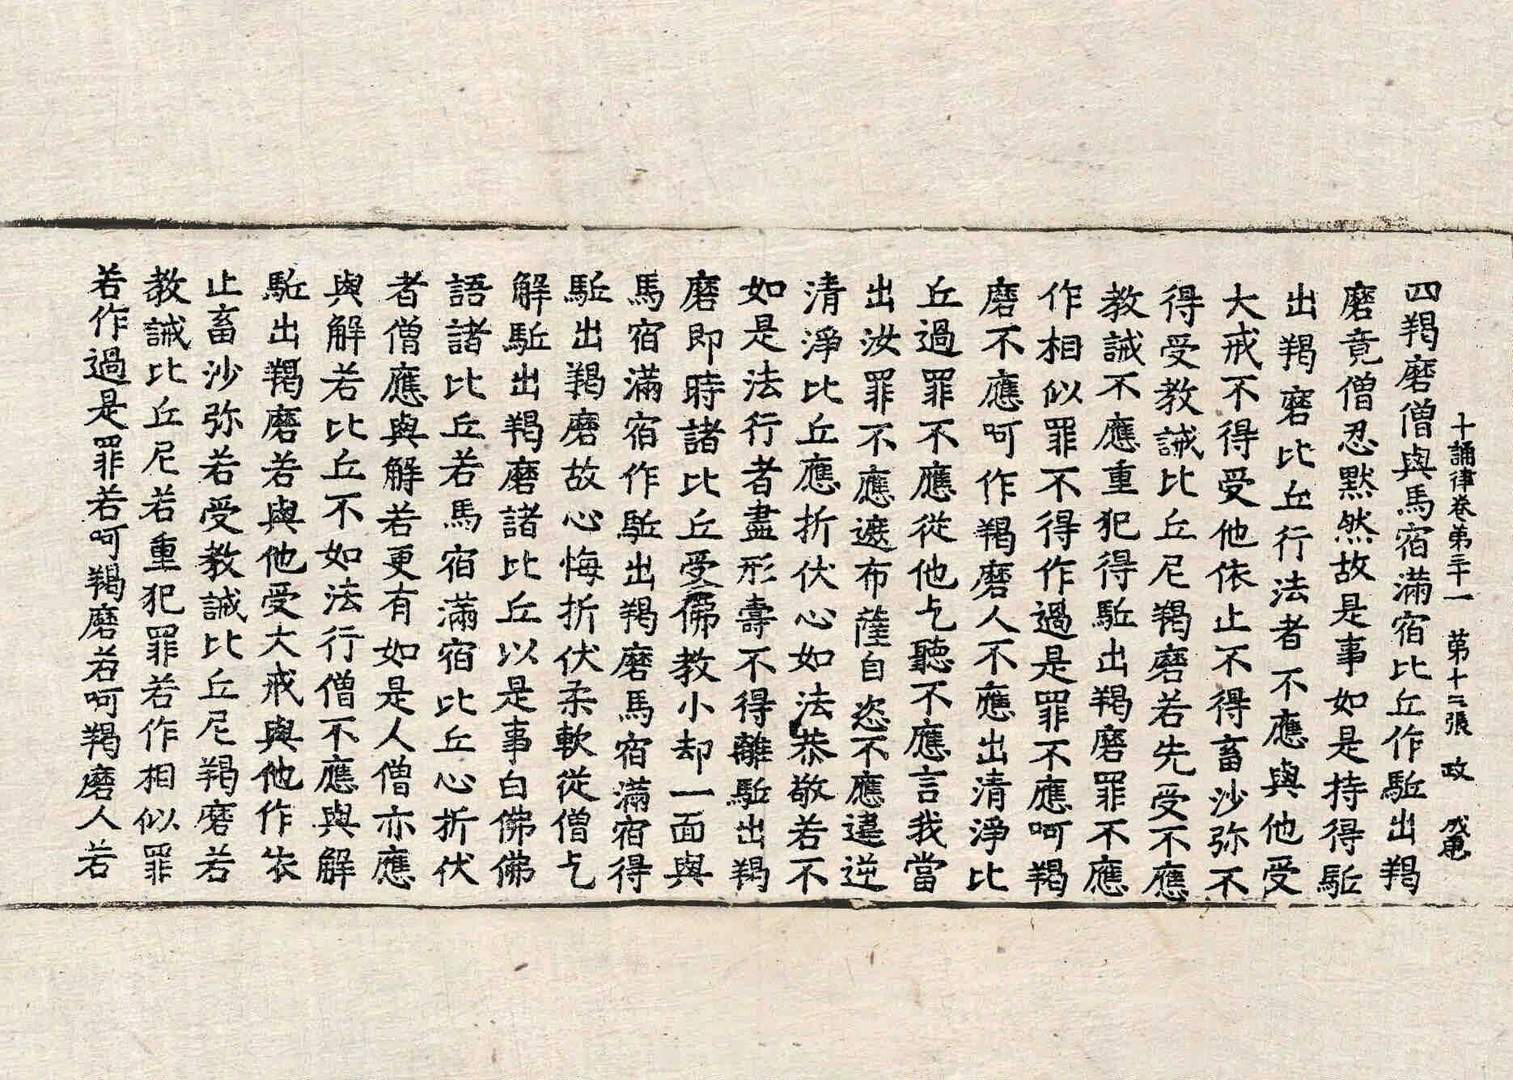 十誦律卷第三十一 第十二張 政 成
四羯磨僧與馬宿滿宿比丘作駈出羯
磨竟僧忍黙然故是事如是持得駈
出羯磨比丘行法者不應與他受
大戒不得受他依止不得畜沙弥不
得受教誡比丘尼羯磨若先受不應
教誡不應重犯得駈出羯磨罪不應
作相似罪不得作過是罪不應呵羯
磨不應呵作羯磨人不應出清淨比
丘過罪不應從他乞聽不應言我當
出汝罪不應遮布薩自恣不應違逆
清淨比丘應折伏心如法恭敬若不
如是法行者盡形壽不得離駈出羯
磨即時諸比丘受佛教小却一面與
馬宿滿宿作駈出羯磨馬宿滿宿得
駈出羯磨故心悔折伏柔軟從僧乞
解駈出羯磨諸比丘以是事白佛佛
語諸比丘若馬宿滿宿比丘心折伏
者僧應與解若更有如是人僧亦應
與解若比丘不如法行僧不應與解
駈出羯磨若與他受大戒與他作依
止畜沙弥若受教誡比丘尼羯磨若
教誡比丘尼若重犯罪若作相似罪
若作過是罪若呵羯磨若呵羯磨人若